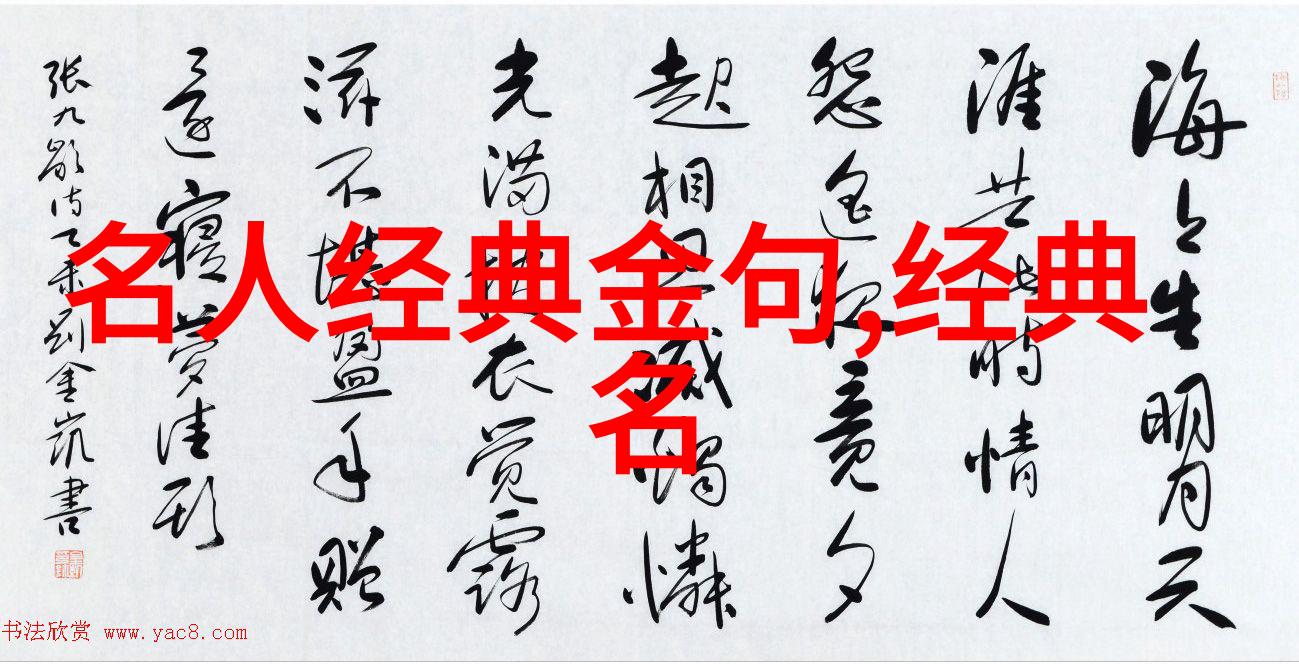 名人经典金句,经典
名
海上生明月天
涯共此時情人
怨遥夜竟夕
起相思滅燭憐
光满披衣觉露
滋不堪盈手贈
還寝夢佳期
张九龄诗乙未刘金凯書
书法欣赏 www.yac8.com